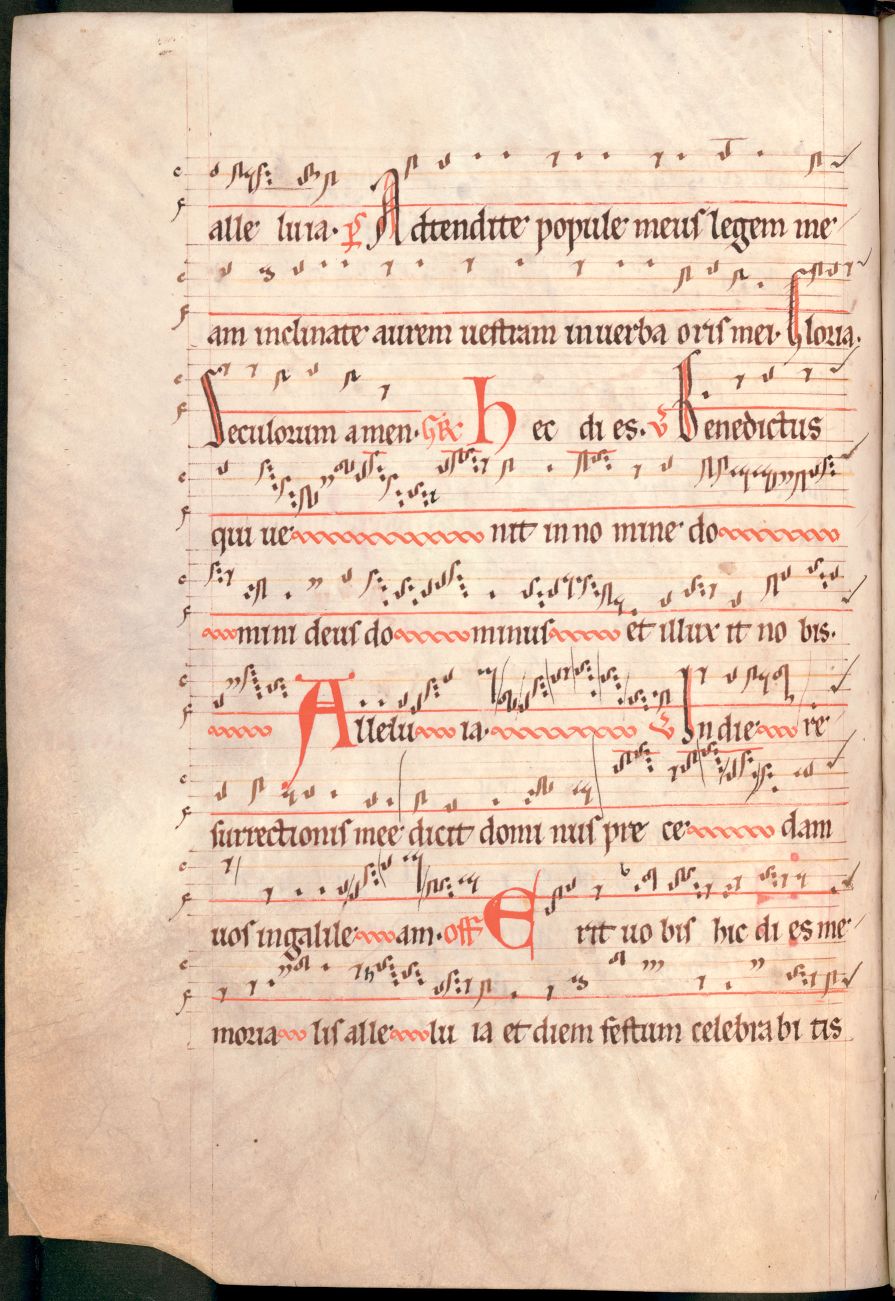 alle luia. ps Adtendite popule meus legem me
am inclinate aurem uestram in uerba oris mei. Gloria.
Seculorum amen. Hec di es. V Benedictus
qui ue nit in no mine do
mini deus do minus et illux it no bis.
Allelu ia. V In die re
surrectionis mee dicit domi nus pre ce dam
uos in galile am. off Erit uo bis hic di es me
moria lis alle lu ia et diem festum celebra bi tis